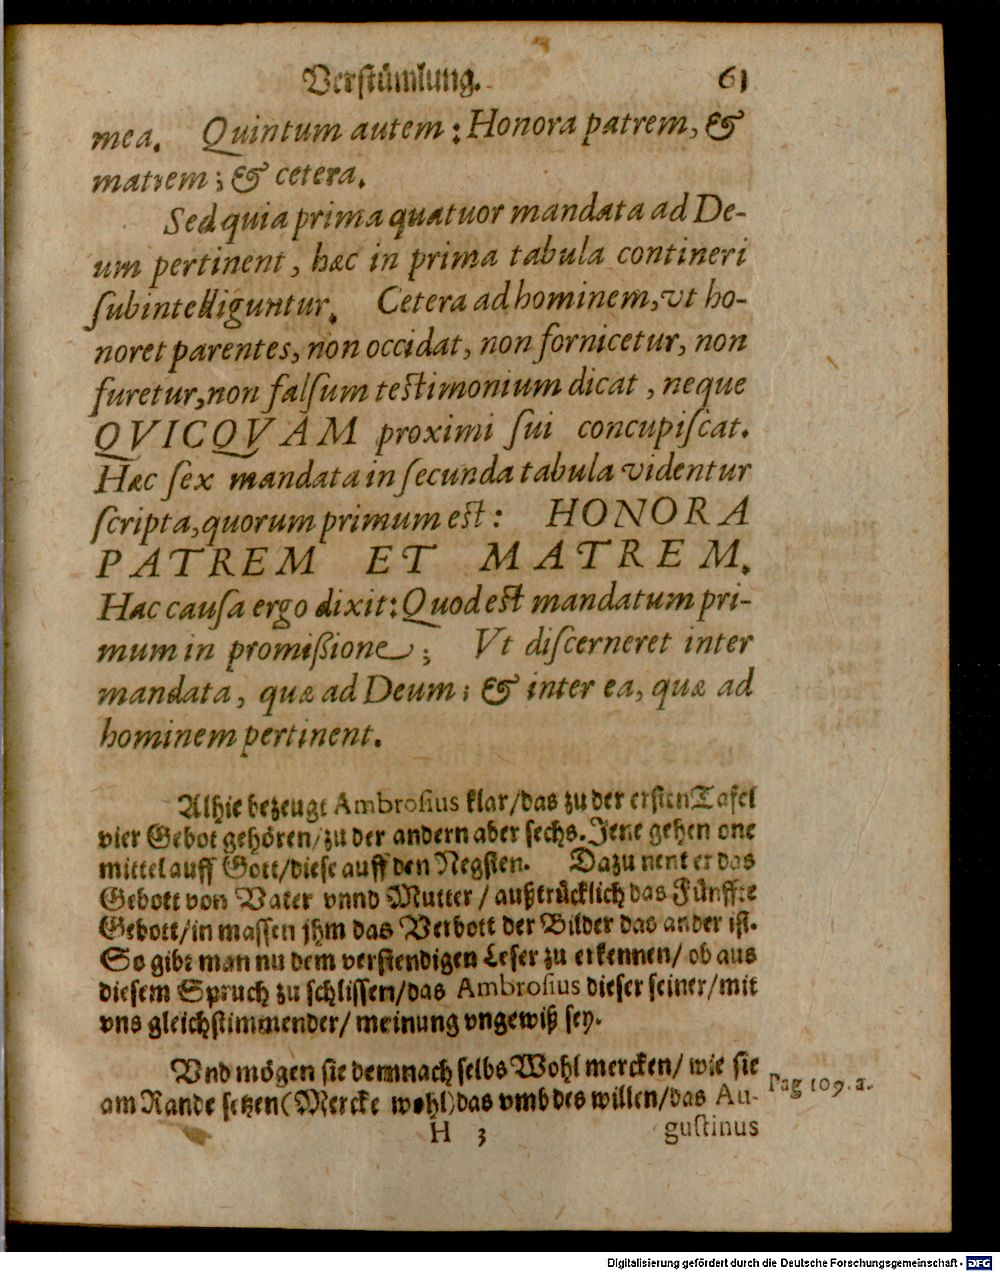 Verstümlung. 61
mea. Quintum autem : Honora patrem, &
matrem ; & cetera.
Sed quia prima quatuor mandata ad De-
um pertinent, hæc in prima tabula contineri
ſubintelliguntur. Cetera ad hominem, vt ho-
noret parentes, non occidat, non fornicetur, non
furetur, non falſum teſtimonium dicat, neque
QVICQVAM proximi ſui concupiſcat.
Hæc ſex mandata in ſecunda tabula videntur
ſcripta, quorum primum eſt: HONORA
PATREM ET MATREM.
Hac cauſa ergo dixit: Quod eſt mandatum pri-
mum in promißione ; Vt diſcerneret inter
mandata, quæ ad Deum ; & inter ea, quæ ad
hominem pertinent.
Alhie bezeugt Ambroſius klar/das zu der erſten Tafel
vier Gebot gehören/zu der andern aber ſechs. Jene gehen one
mittel auff Gott/dieſe auff den Negſten. Dazu nent er das
Gebott von Vater vnnd Mutter / außtrücklich das Fünffte
Gebott/in maſſen jhm das Verbott der Bilder das ander iſt.
So gibt man nu dem verſtendigen Leſer zu erkennen/ ob aus
dieſem Spruch zu ſchliſſen/das Ambroſius dieſer ſeiner/mit
vns gleichſtimmender/ meinung vngewiß ſey.
Vnd mögen ſie demnach ſelbs Wohl mercken/ wie ſie
am Rande ſetzen(Mercke wohl)das vmb des willen/das Au-
Pag 109. a.
H 3 guſtinus
Digitalisierung gefördert durch die Deutsche Forschungsgemeinschaft - DFG